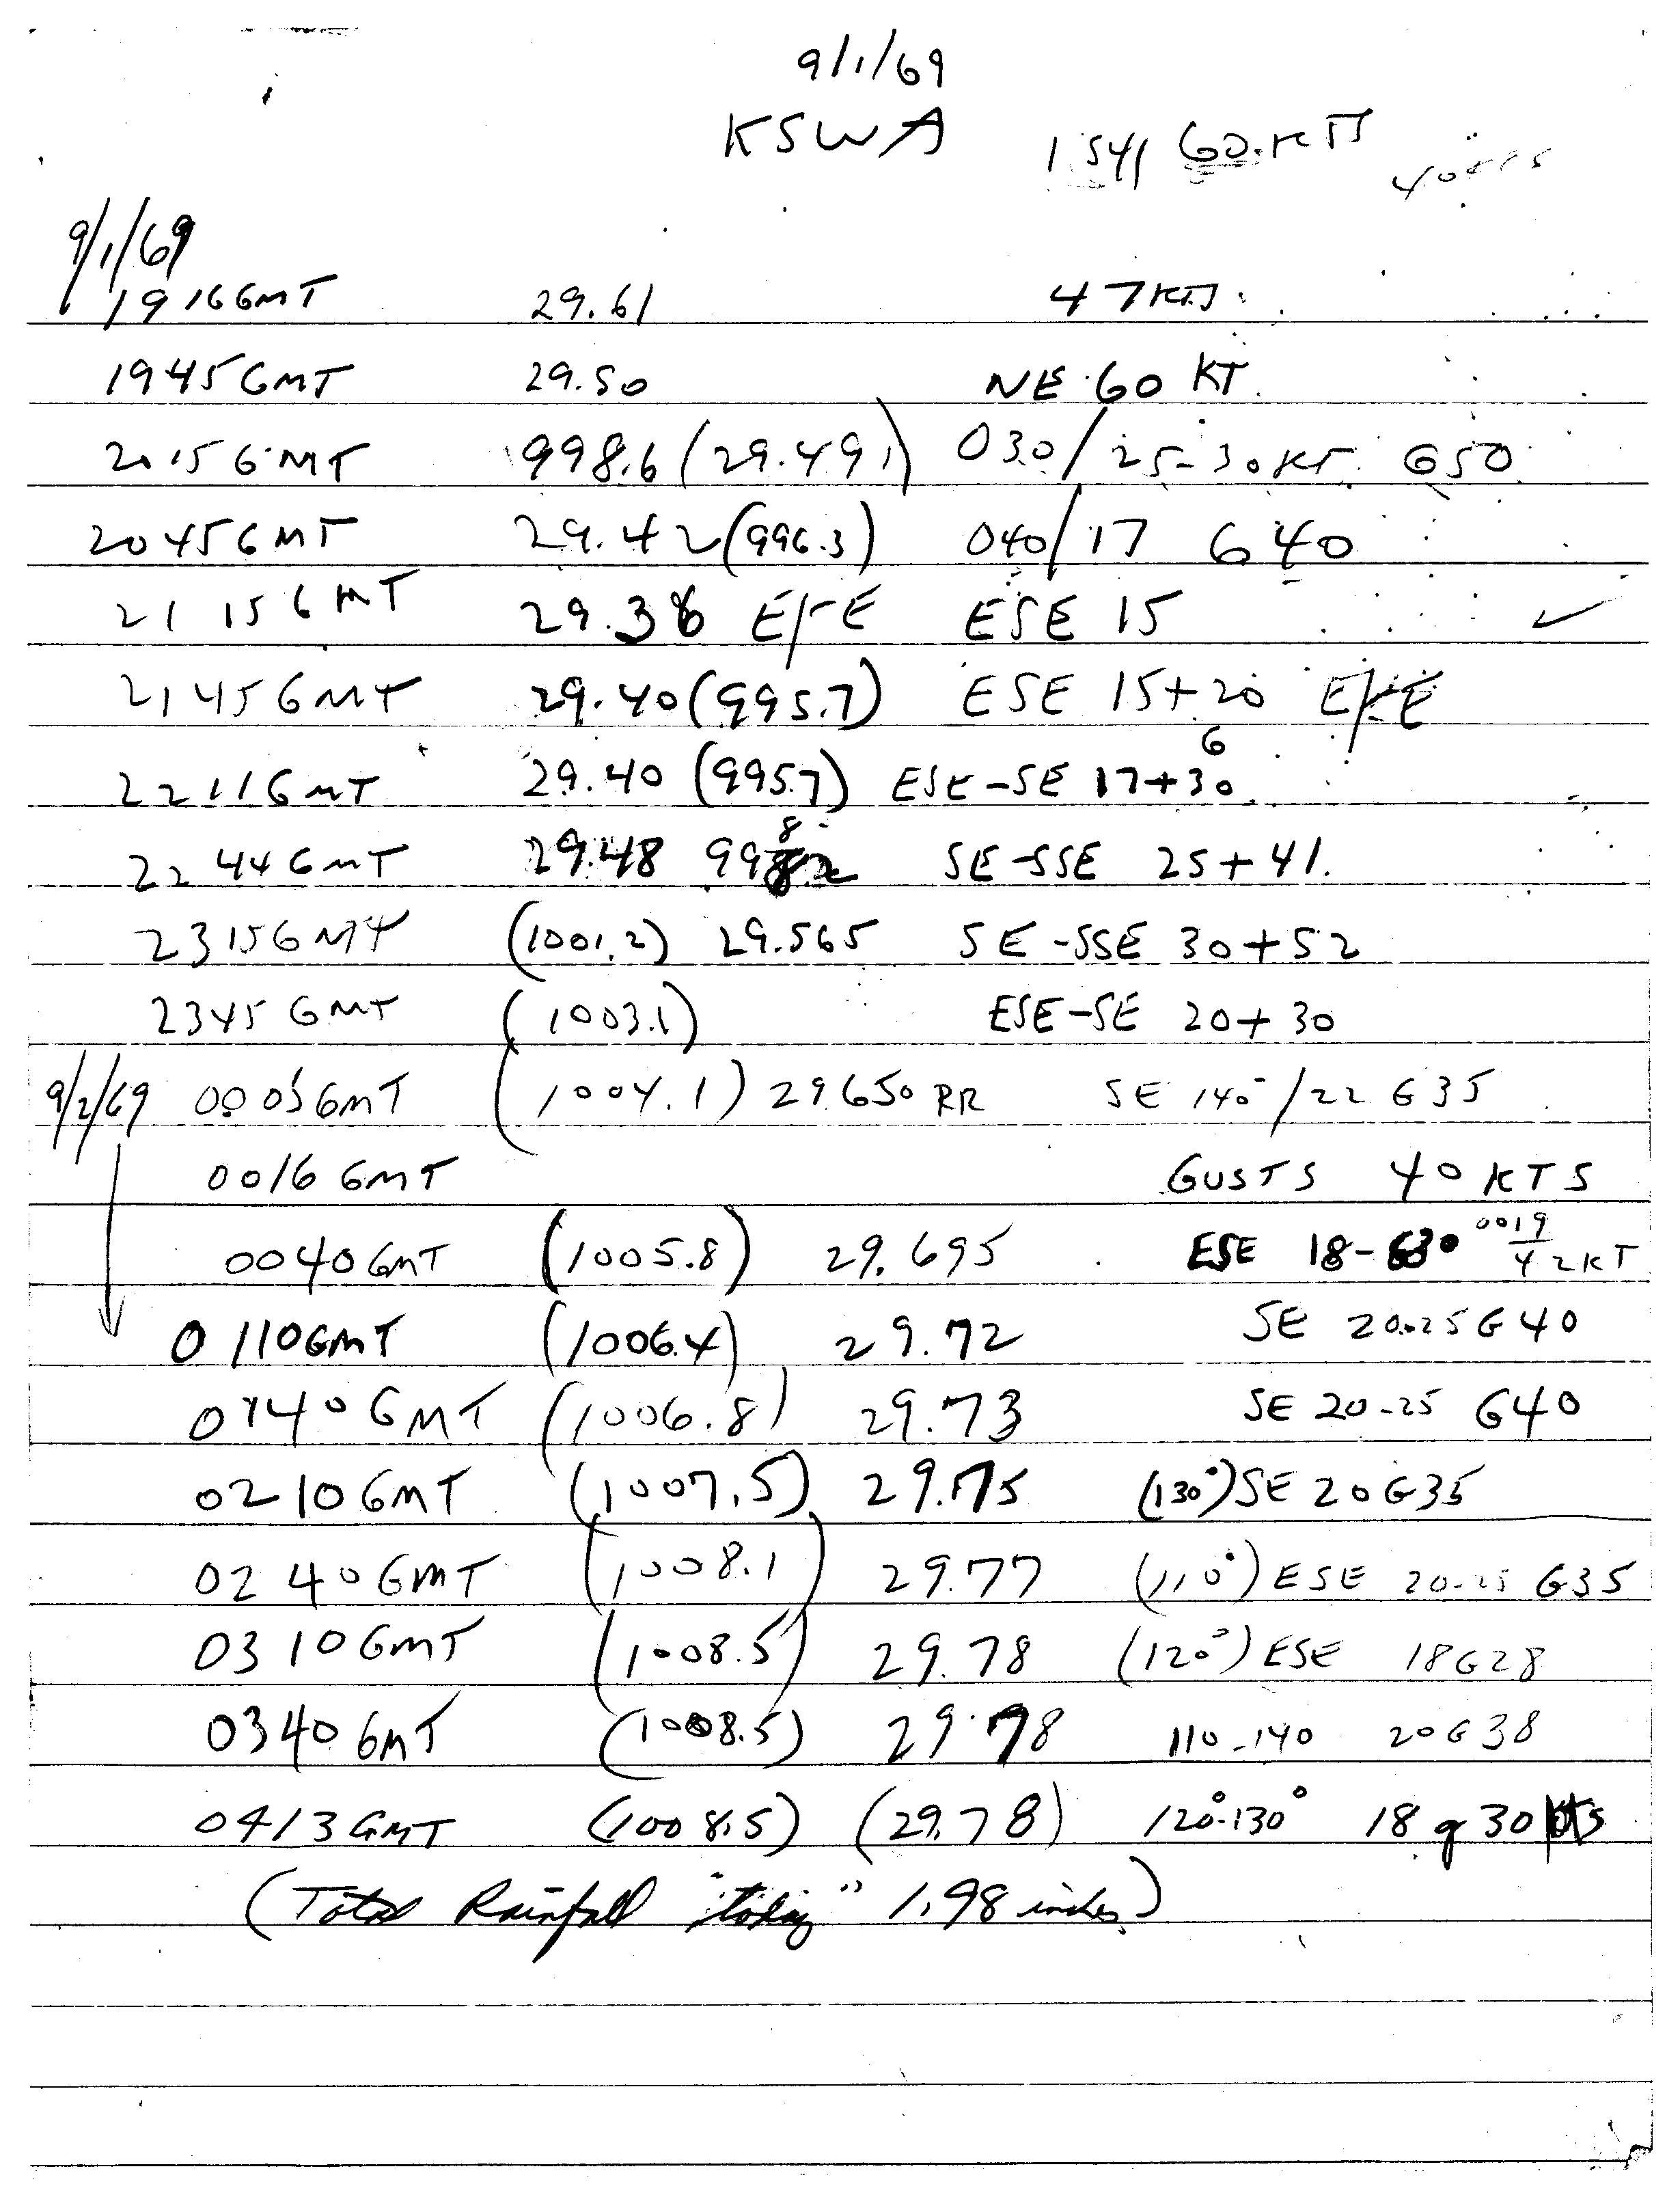 9/1/69
KSWA 1541 60.KTS 40KTS
9/1/69
1916 GMT 29.61 47KTS.
1945 GMT 29.50 NE 60 KT.
2015 GMT 998.6 (29.491) 030/25-30KT. G50
2045 GMT 29.42 (996.3) 040/17 G40
2115 GMT 29.38 ESE 15 ✓
2145 GMT 29.40 (995.7) ESE 15+20
2211 GMT 29.40 (995.7) ESE-SE 17+30
G
2244 GMT 29.48 SE-SSE 25+41.
2315 GMT (1001.2) 29.565 SE-SSE 30+52
2345 GMT (1003.1) ESE-SE 20+30
9/2/69 0005 GMT (1004.1) 29.650 RR SE 140°/22 G35
0016 GMT GUSTS 40 KTS
0040 GMT (1005.8) 29.695 ESE 18-G30 0019/42KT
0110 GMT (1006.4) 29.72 SE 20-25 G40
0140 GMT (1006.8) 29.73 SE 20-25 G40
0210 GMT (1007.5) 29.75 (130°) SE 20 G35
0240 GMT (1008.1) 29.77 (110°) ESE 20-25 G35
0310 GMT (1008.5) 29.78 (120°) ESE 18G28
0340 GMT (1008.5) 29.78 110-140 20G38
0413 GMT (1008.5) (29.78) 120°-130° 18 g 30 kts
(Total Rainfall "today" 1.98 inches)